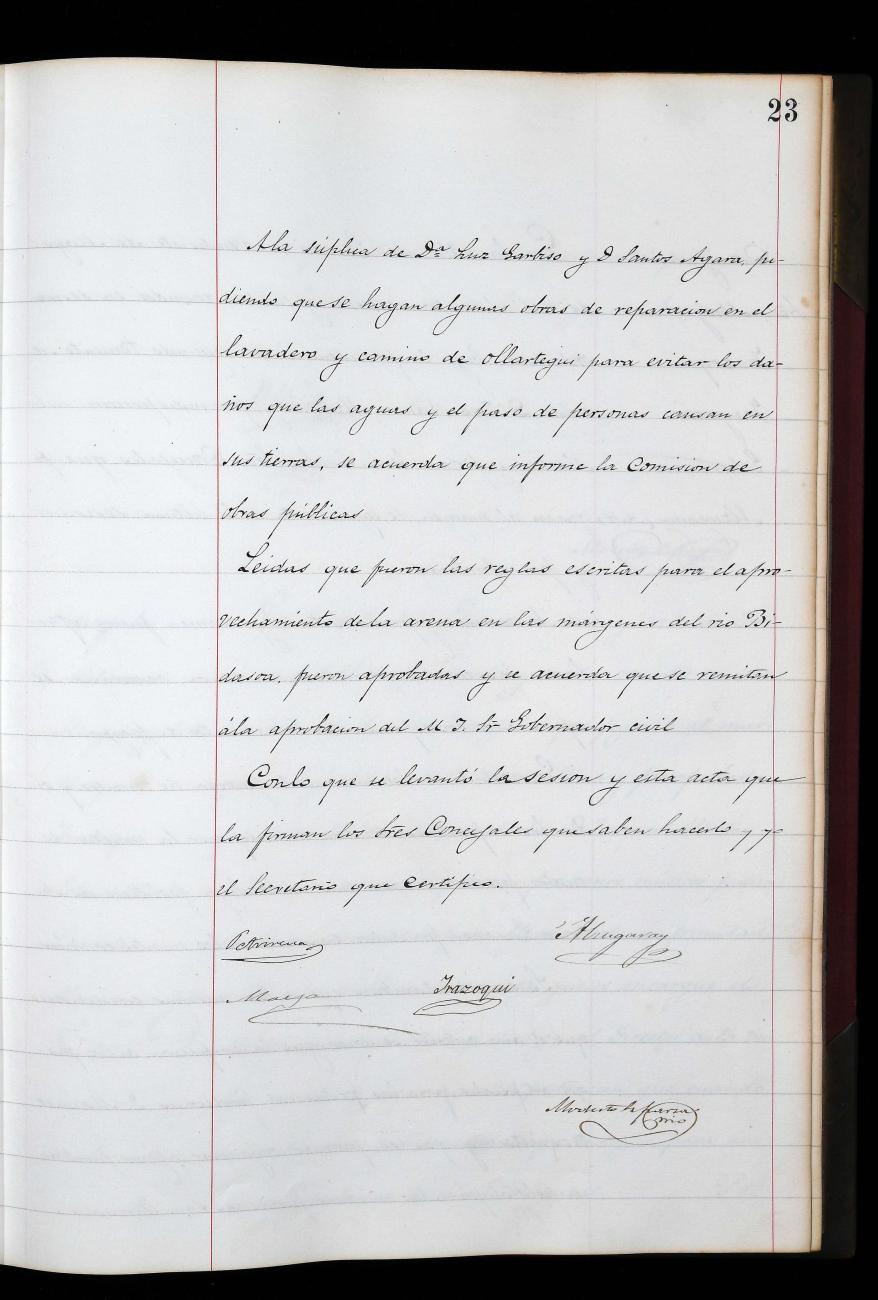 23
A la súplica de Dª Luz Garbiso y D Santos Agara, pi-
diendo que se hagan algunas obras de reparacion en el
lavadero y camino de Ollartegui para evitar los da-
ños que las aguas y el paso de personas causan en
sus tierras, se acuerda que informe la Comision de
obras públicas
Leidas que fueron las reglas escritas para el apro-
vechamiento de la arena en las márgenes del rio Bi-
dasoa, fueron aprobadas y se acuerda que se remitan
á la aprobacion del M. I. Sr Gobernador civil
Con lo que se levantó la sesion y esta acta que
la firman los Sres Concejales que saben hacerlo y yo
el Secretario que certifico.
Irazoqui